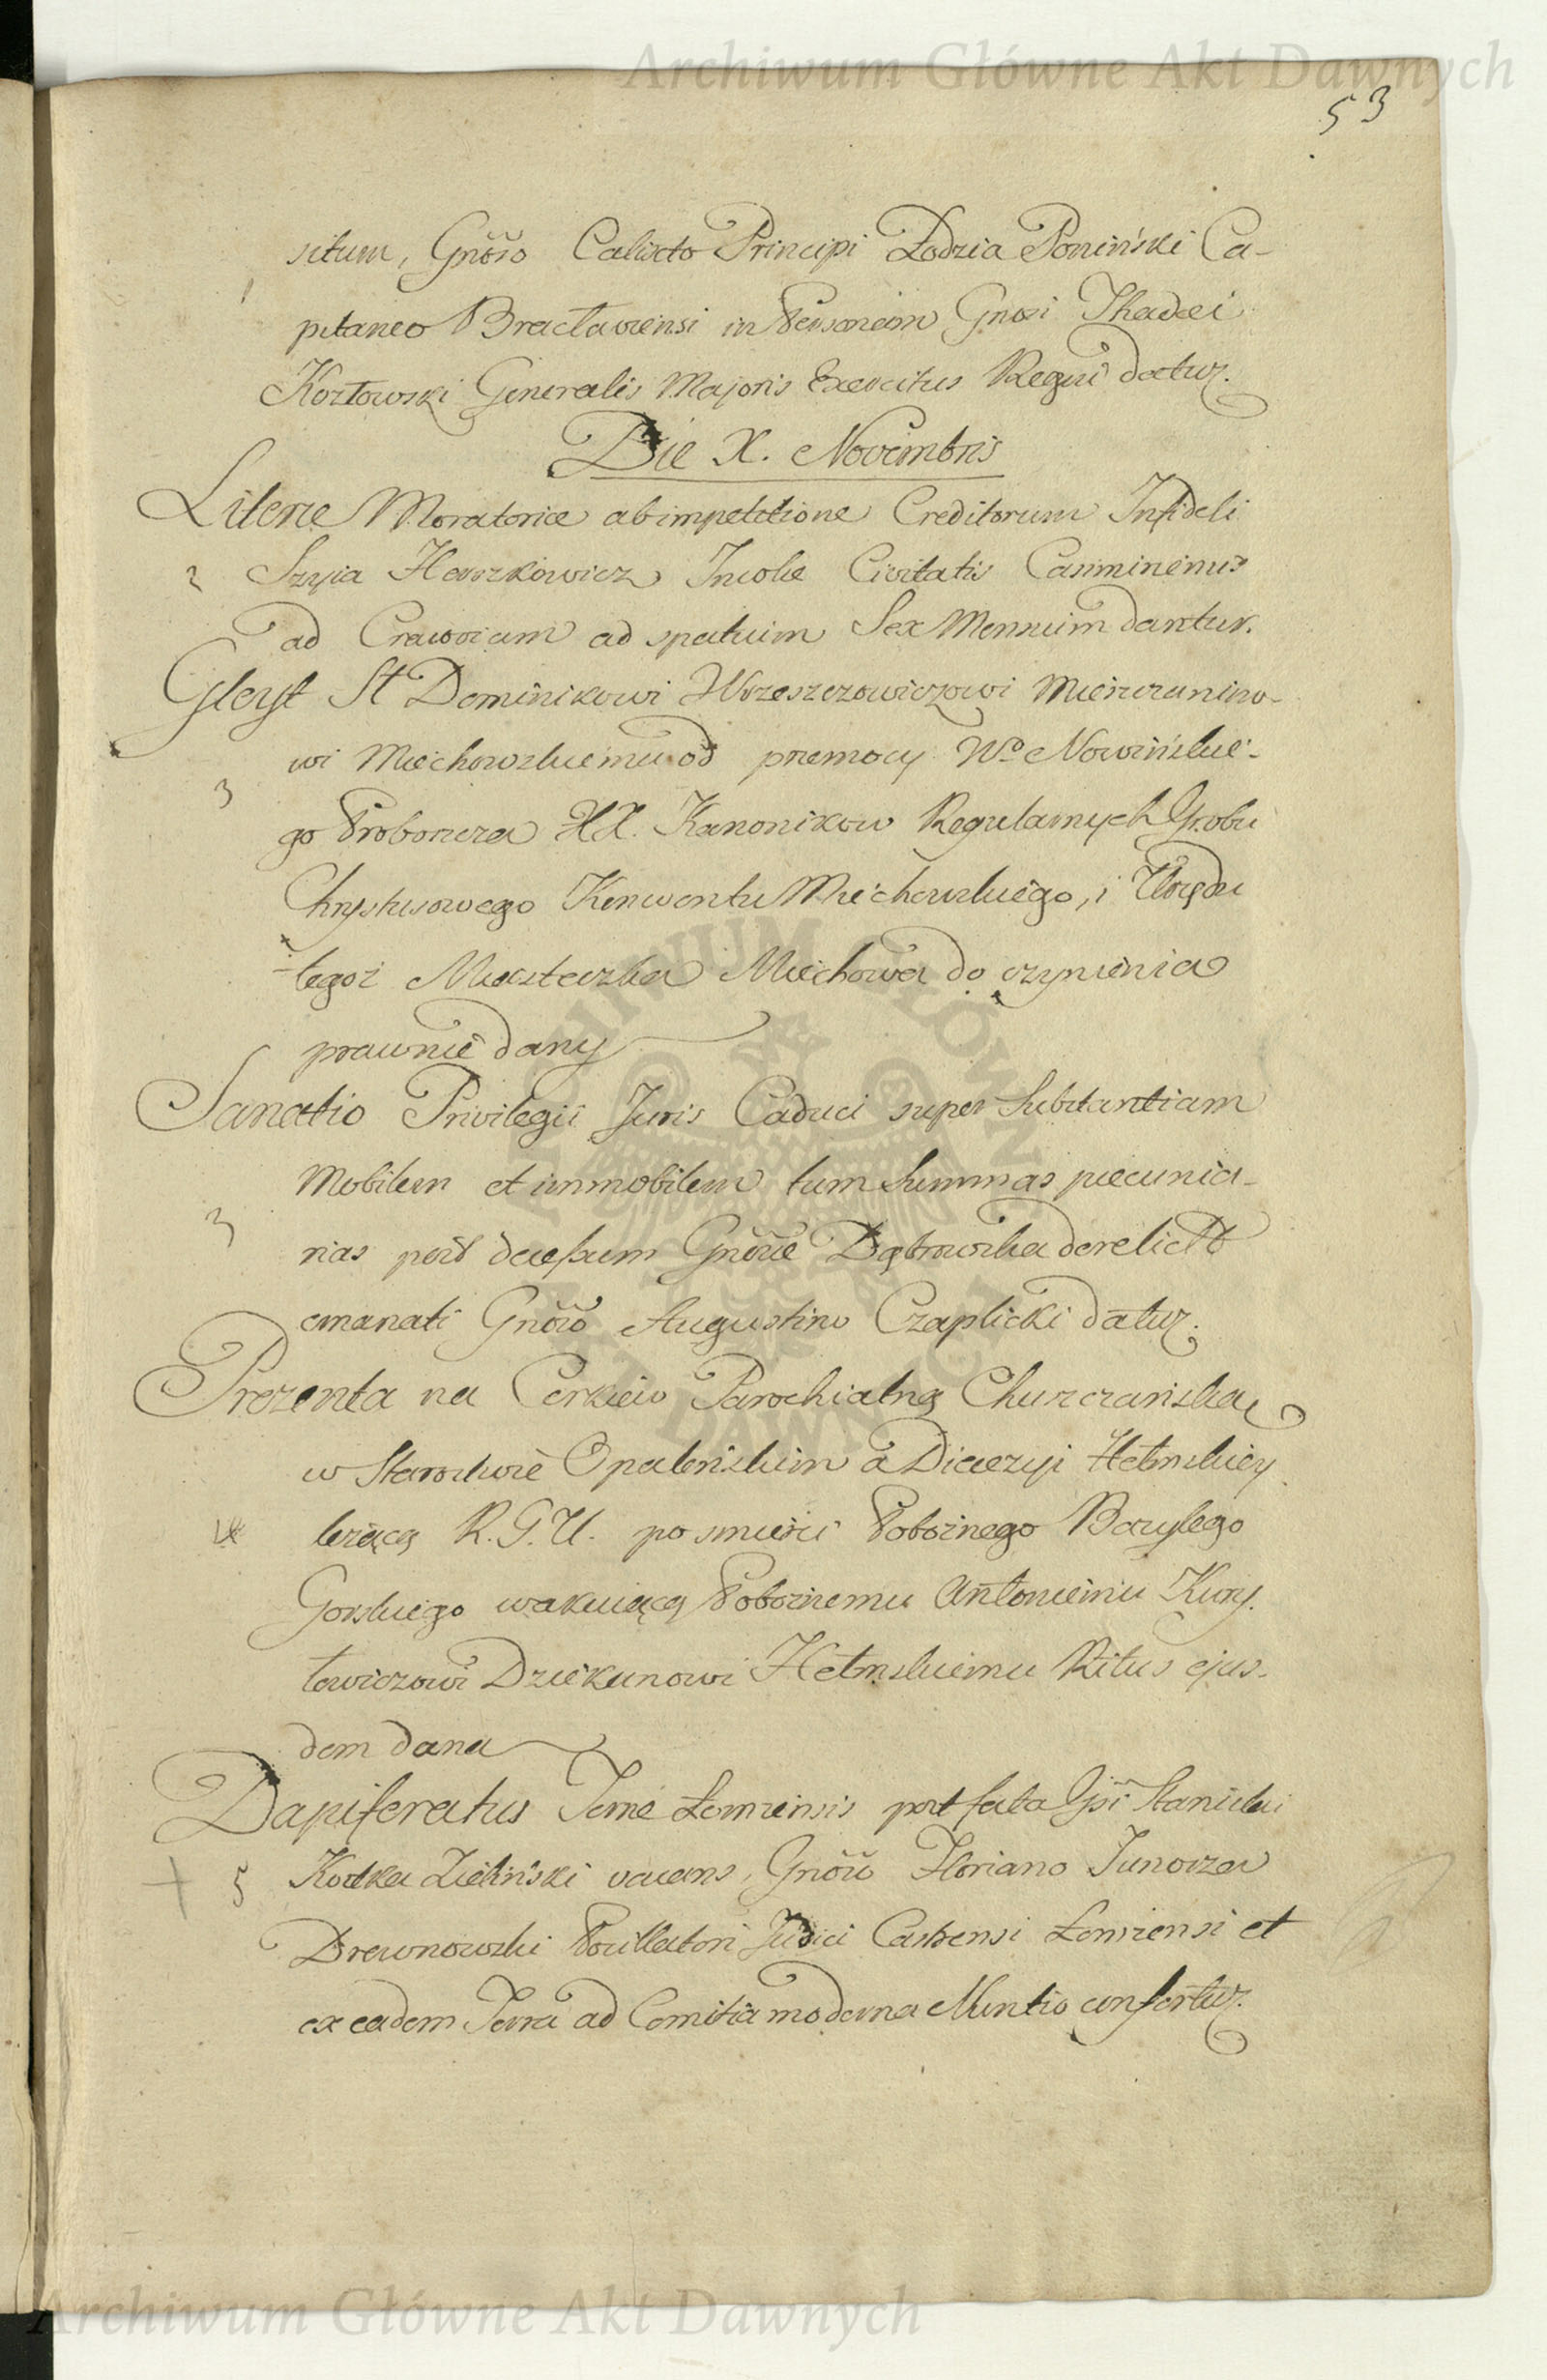 Archiwum Główne Akt Dawnych
53
situm, Gnoso Calixto Principi Łodzia Poniński Ca-
pitaneo Bracłaviensi in Personam Gnosi Thadei
Kozłowski Generalis Majoris Exercitus Regni datur.
Die X. Novembris
Literæ Moratoriæ ab impetitione Creditorum Infideli
2 Szyia Herszkowicz Incolæ Civitatis Casimiriensis
ad Cracoviam ad spatium Sex Mensium dantur.
Gleyt St Dominikowi Wrzeszczowiczowi Mieszczanino-
wi Miechowskiemu od przemocy Wo Nowińskie-
3
go Proboszcza XX. Kanonikow Regularnych Grobu
Chrystusowego Konwentu Miechowskiego, i Urzędu
tegoż Miasteczka Miechowa do czynienia
prawnie dany
Sanatio Privilegii Juris Caduci super Substantiam
Mobilem et immobilem tum Summas pecunia-
3
rias post decessum Gnosæ Dąbrowska derelict
emanati Gnoso Augustino Czaplicki datur.
Prezenta na Cerkiew Parochialną
w Starostwie a Diecezyi Hełmskiey
4 leżącą R. G. U. po śmierci Pobożnego Bazylego
Gorskiego wakuiącą Pobożnemu Antoniemu Kury-
łowiczowi Dziekanowi Hełmskiemu Ritus ejus-
dem dana
Dapiferatus Terræ Łomzensis post fata Gsi Stanislai
5 Kostka Zieliński vacans, Gnoso Floriano Junosza
Drewnowski Pocillatori Judici Castrensi Łomzensi et
ex eadem Terra ad Comitia moderna Nuntio confertur.
Archiwum Główne Akt Dawnych